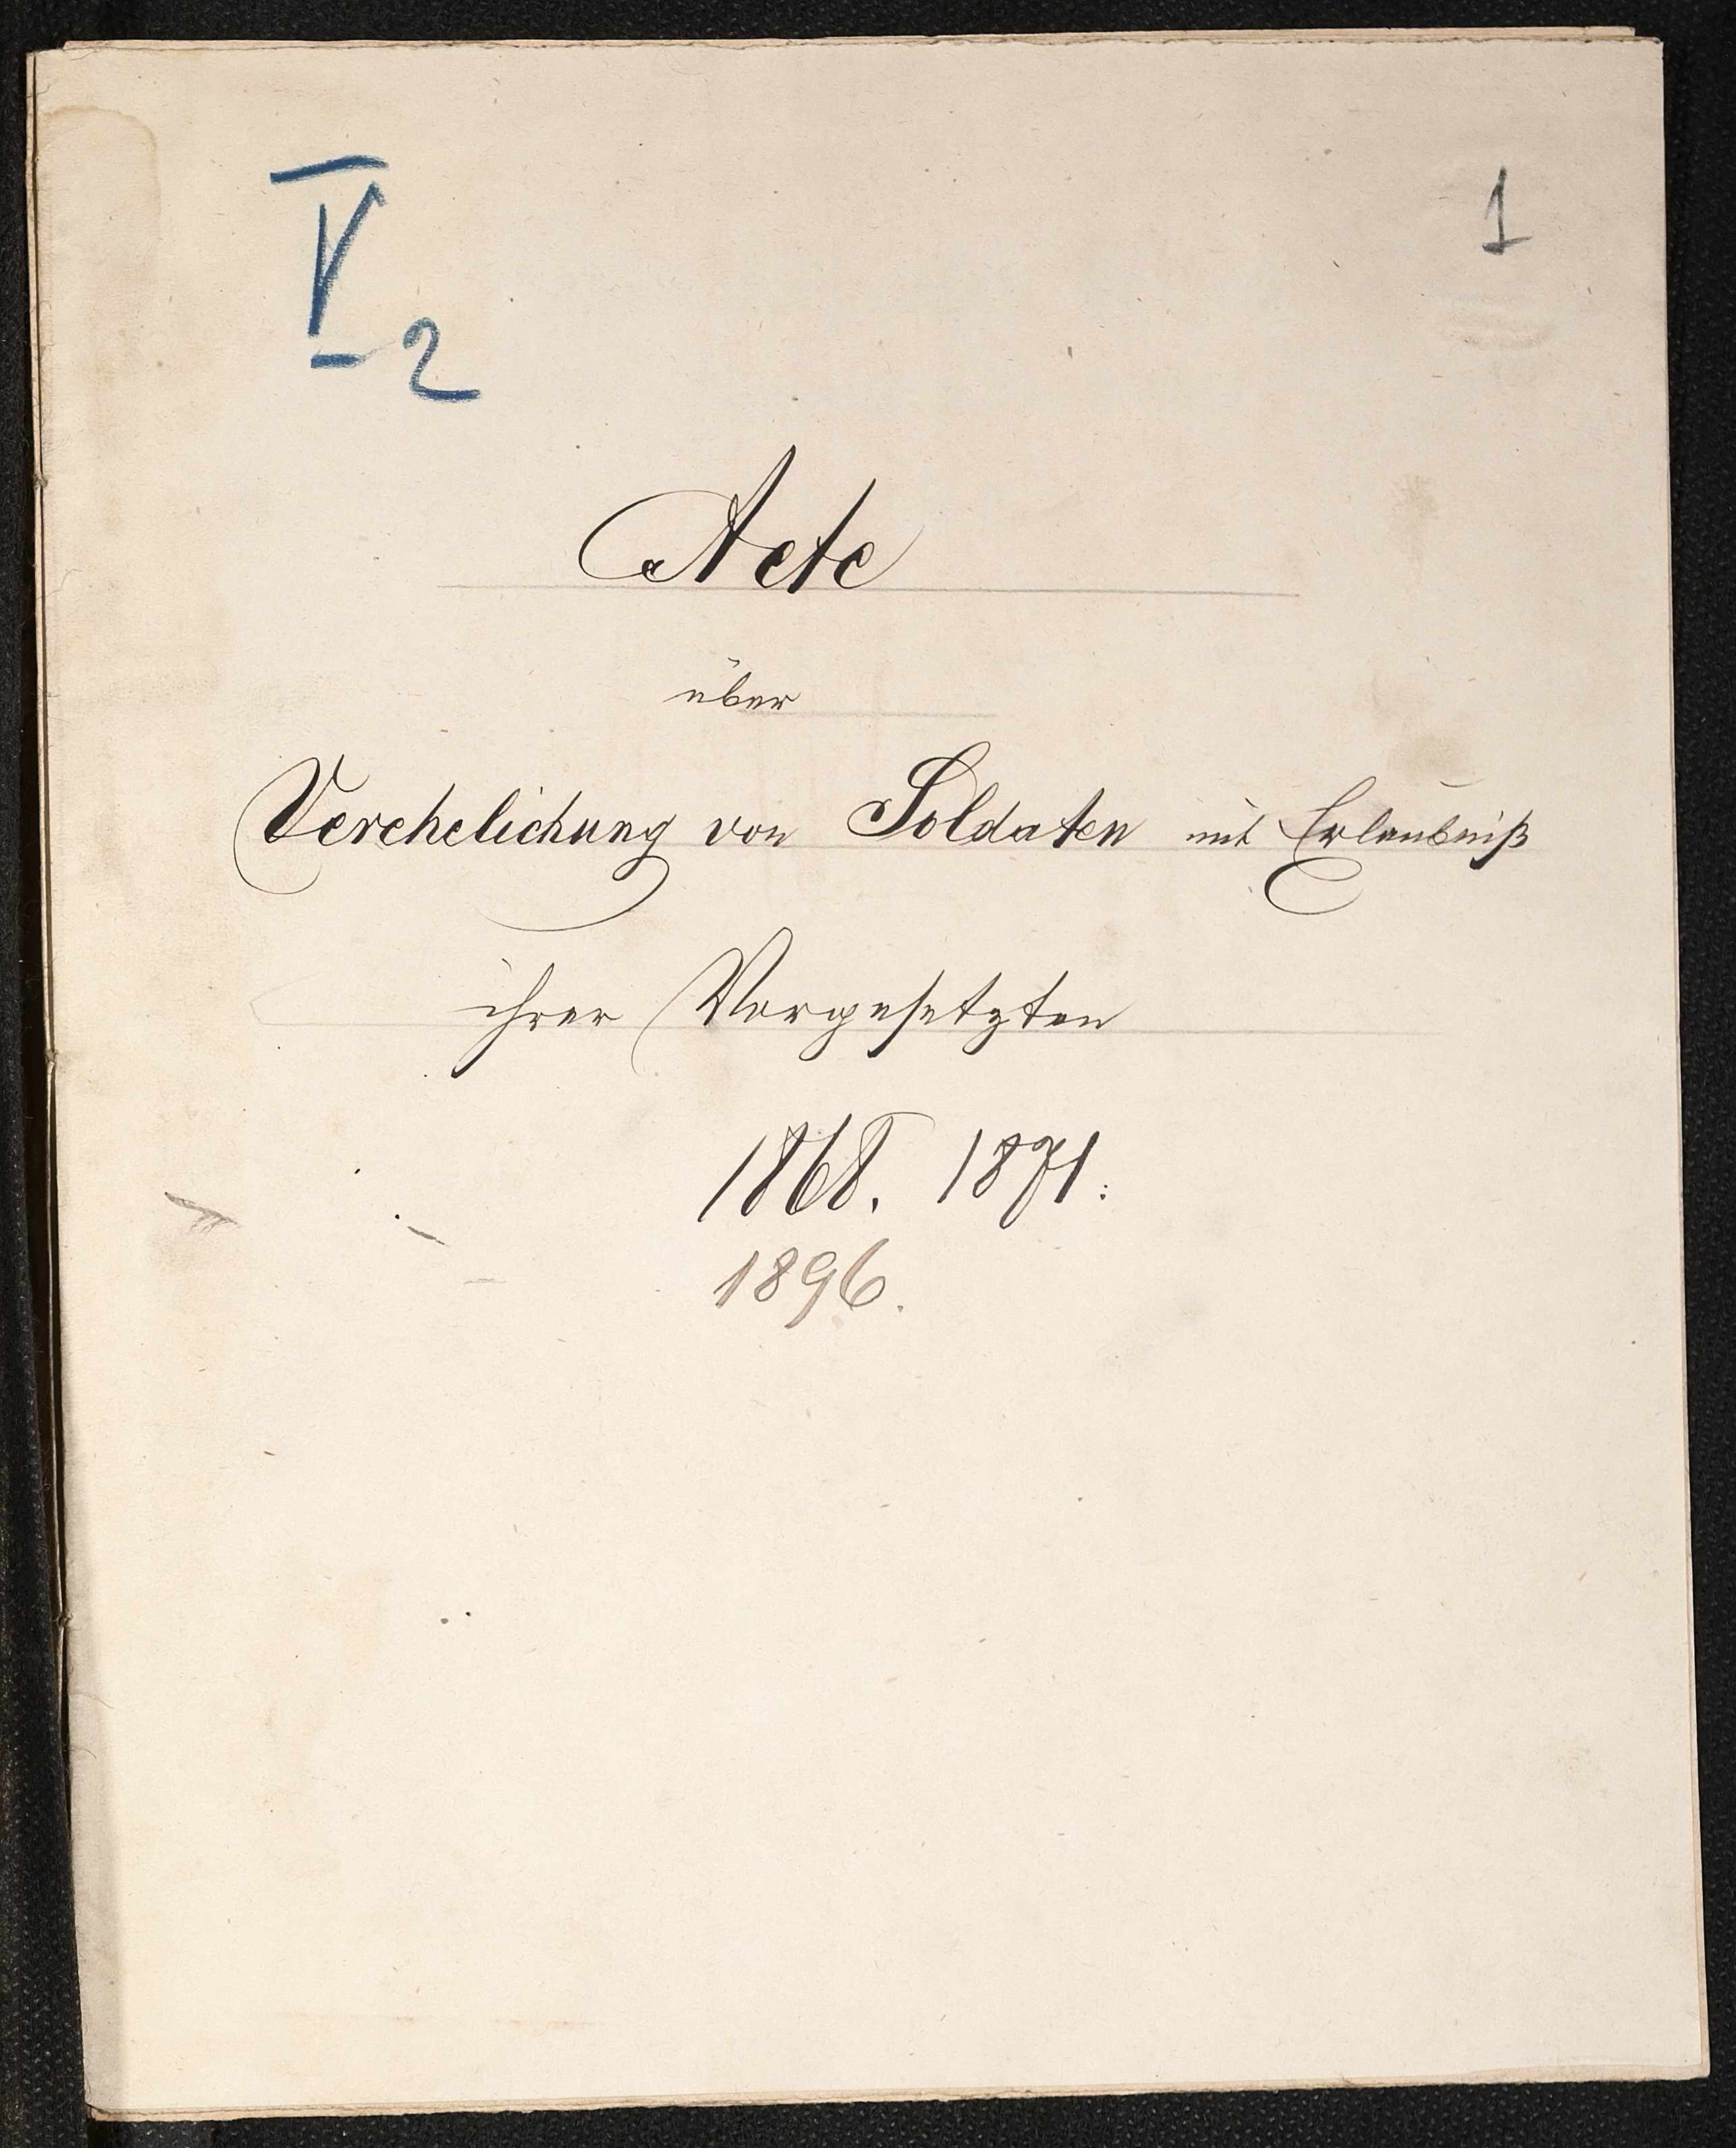 V 2
1
Acte
über
Verehelichung von Soldaten mit Erlaubniß
ihrer Vorgesetzten
1868. 1871.
1896.